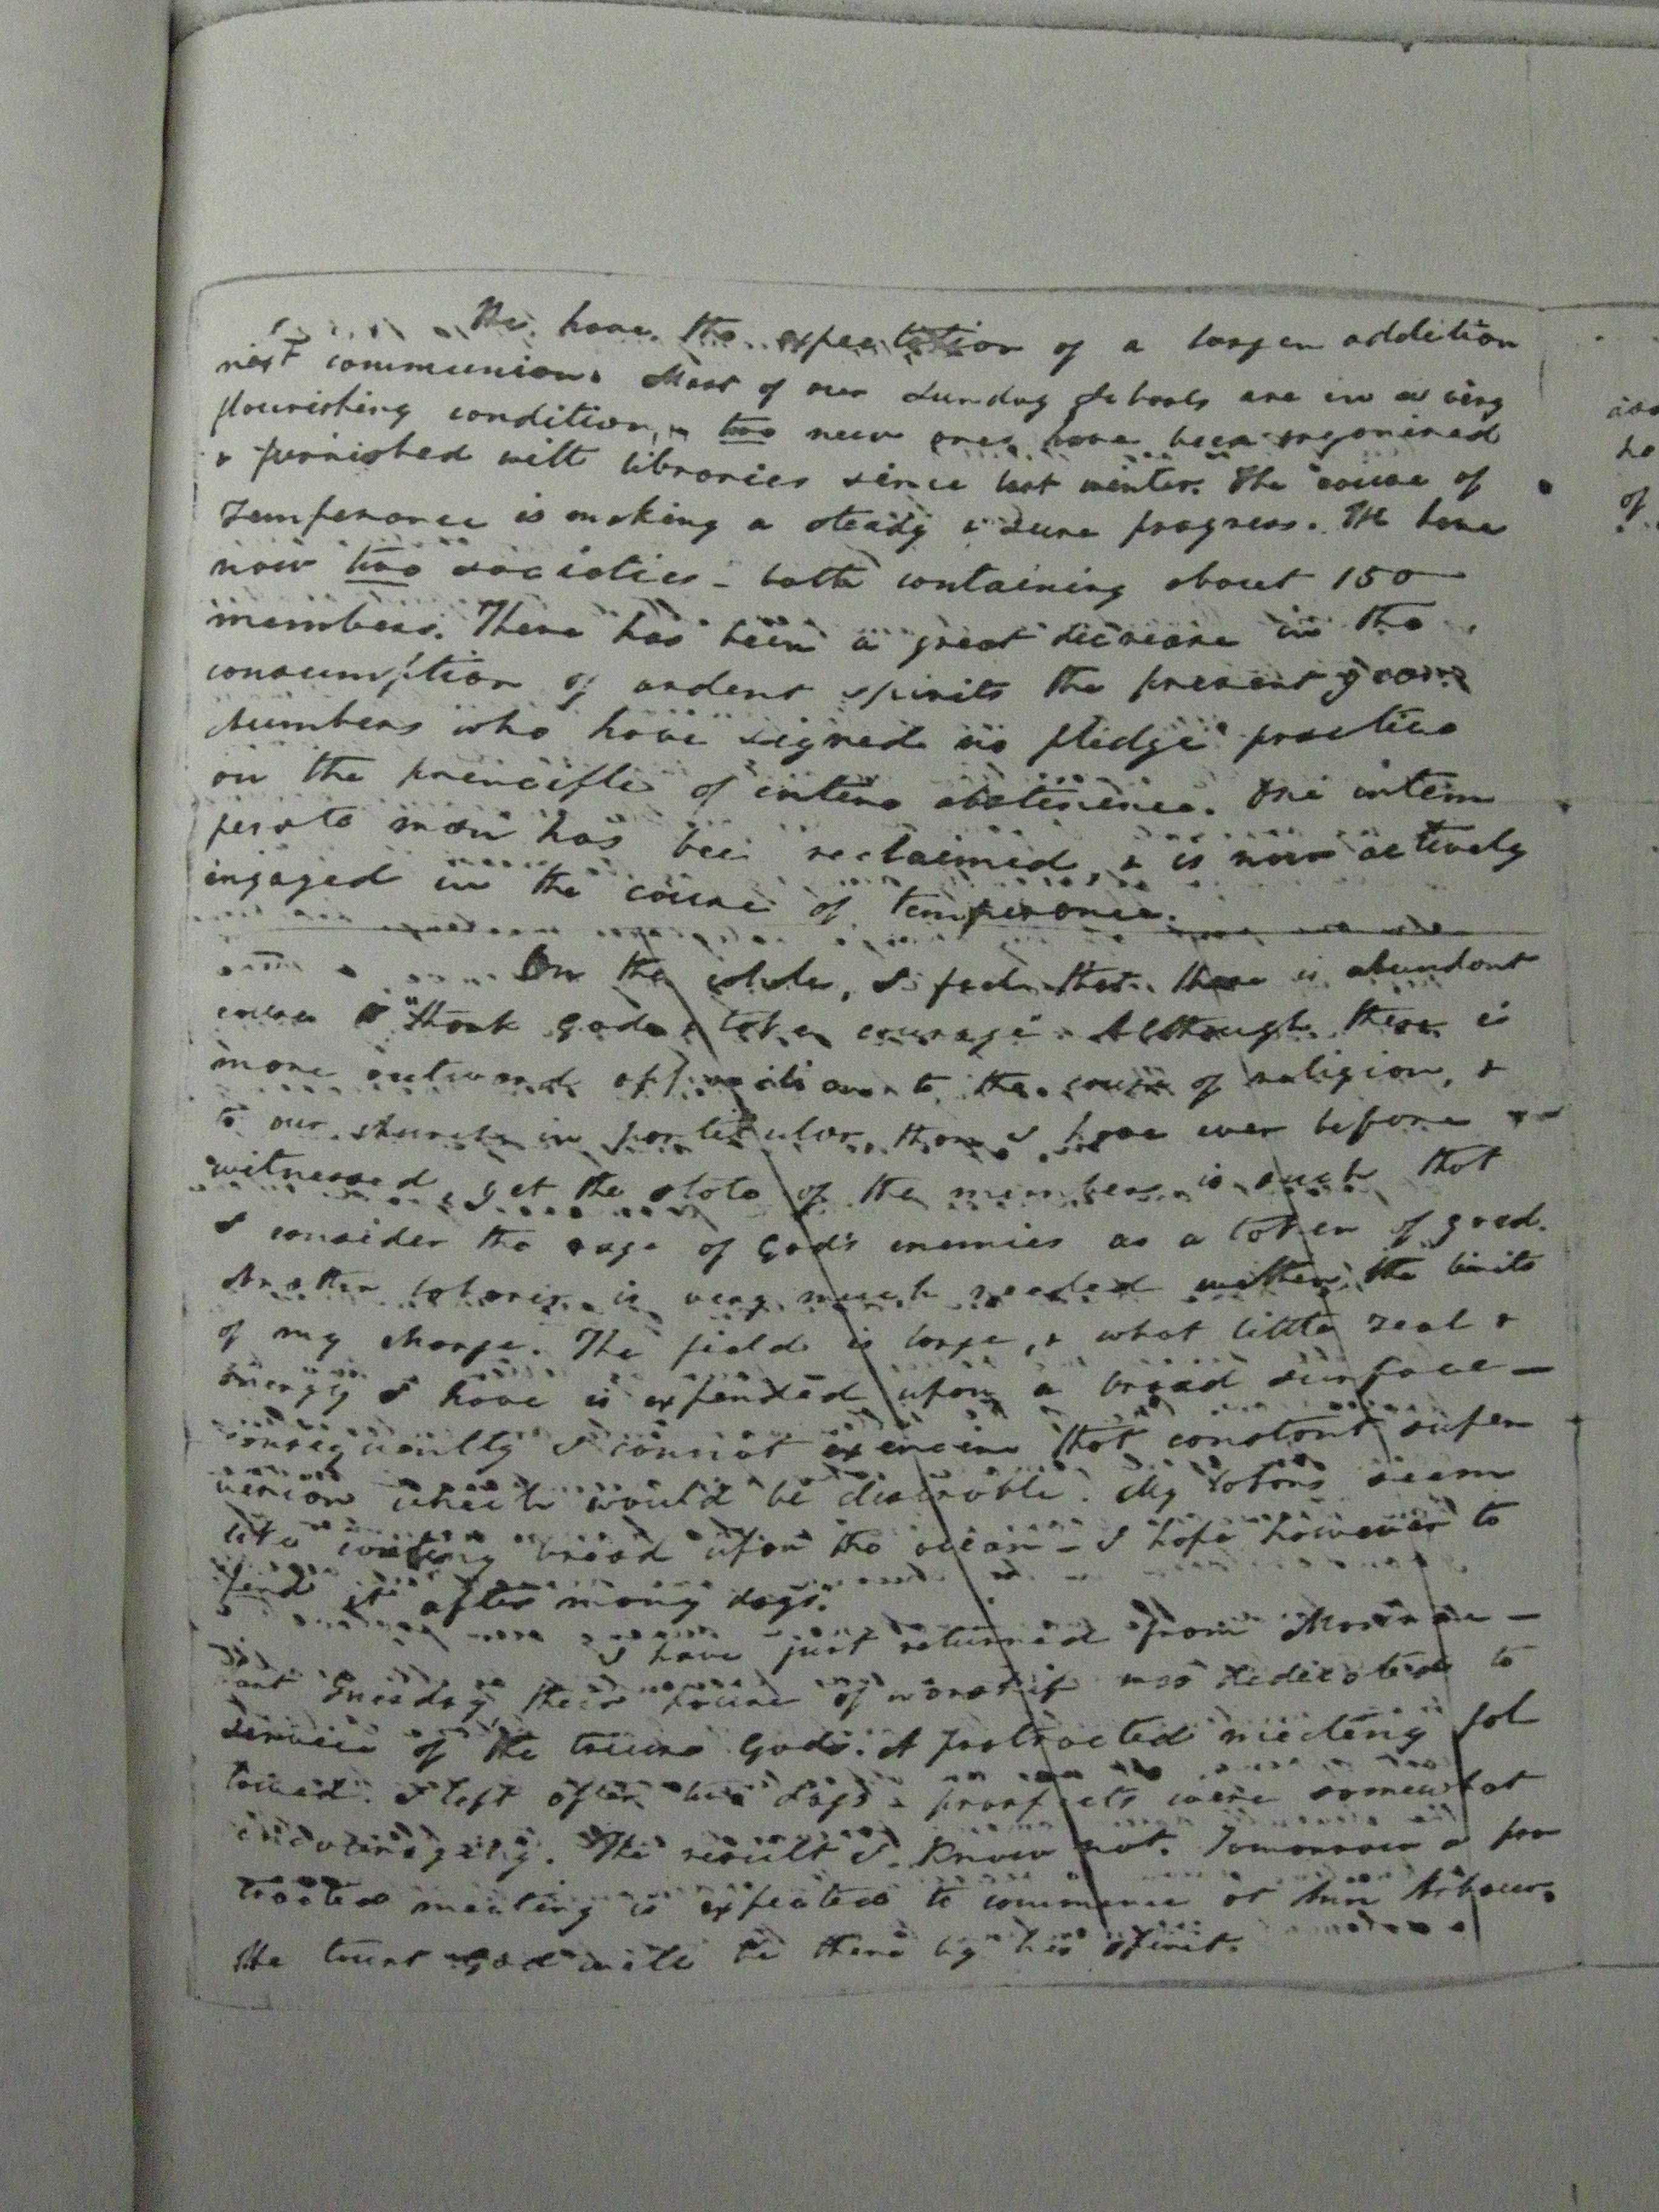 We have the expectation of a larger addition
next communion. Most of our Sunday Schools are in a very
flourishing condition, & two new ones have been organized
& furnished with libraries since last winter. The cause of
Temperance is making a steady & sure progress. We have
now two societies - both containing about 150
members. There has been a great decrease in the
consumption of ardent spirits the present year.
Numbers who have signed no pledge practice
on the principle of entire abstinence. One intem
perate man has been reclaimed, & is now actively
engaged in the cause of temperance.
On the whole, I feel that there is abundant
cause to "thank God & take courage". Although there is
more outward opposition to the cause of religion, &
to our church in particular, than I have ever before
witnessed, yet the state of the members is such that
I consider the rage of God's enemies as a token of good.
Another laborer is very much needed within the limits
of my charge. The field is large, & what little zeal &
energy I have is expended upon a broad surface -
consequently I cannot exercise that constant super
vision which would be desirable. My labors seem
like casting bread upon the ocean - I hope however to
find it after many days."
I have just returned from Monroe -
last Tuesday their house of worship was dedicated to
service of the triune God. A protracted meeting fol
lowed. I left after two days - prospects were somewhat
encouraging. The result I know not. Tomorrow a pro
tracted meeting is expected to commence at Ann Arbour.
We trust God will be there by his spirit.
he
of